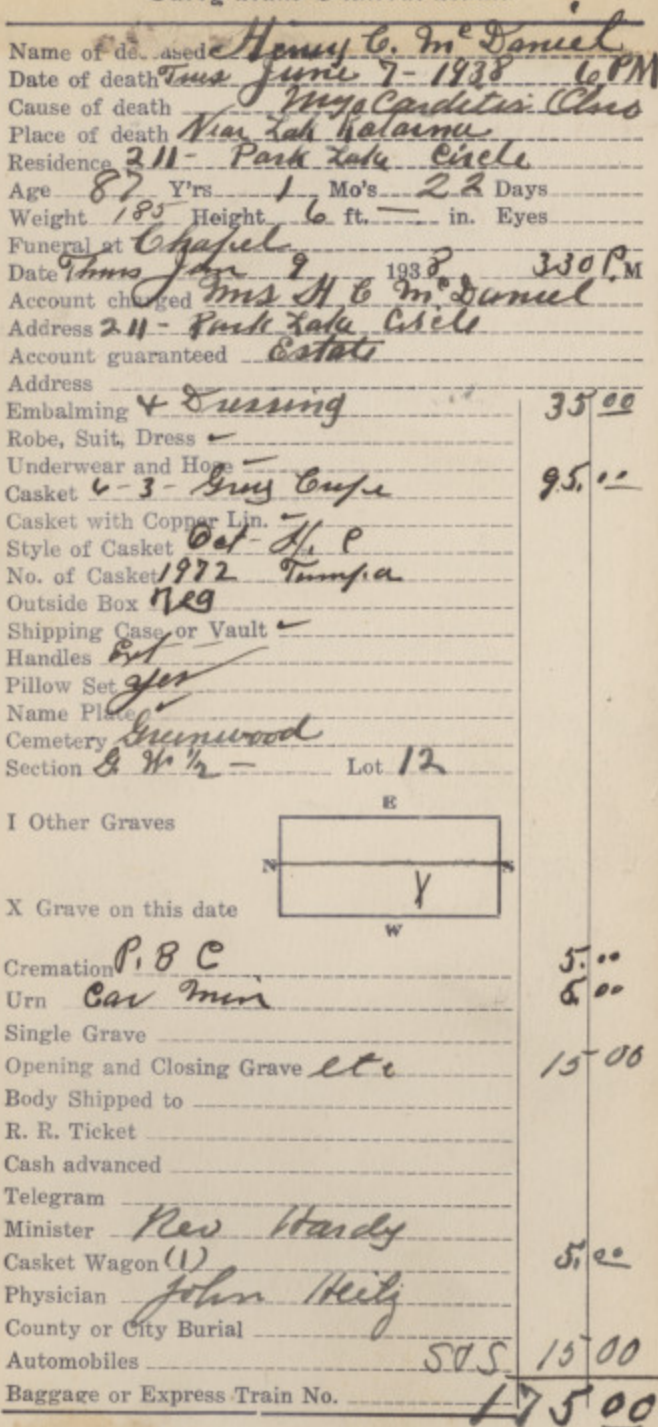 Name of deceased Henry C. McDaniel
Date of death Tues June 7 - 1938 6 PM
Cause of death Myocarditis Chro
Place of death Near Lak
Residence 211 - Park Lake Circle
Age 87 Y'rs 1 Mo's 22 Days
Weight 185 Height 6 ft. — in. Eyes
Funeral at Chapel
Date Thurs Jun 9 1938 330 P.M
Account charged Mrs H C McDaniel
Address 211 - Park Lake Circle
Account guaranteed Estate
Address
Embalming & Dressing 35 00
Robe, Suit, Dress
Underwear and Hose
Casket 6-3 - Grey Crepe 95.00
Casket with Copper Lin.
Style of Casket Oct - H. C
No. of Casket 1972 Tampa
Outside Box Reg
Shipping Case or Vault
Handles Ext
Pillow Set yes
Name Plate
Cemetery Greenwood
Section G W 1/2 — Lot 12
E
I Other Graves
N S
X
X Grave on this date
W
Cremation P. B C 5.00
Urn Car Min 5.00
Single Grave
Opening and Closing Grave etc 15 00
Body Shipped to
R. R. Ticket
Cash advanced
Telegram
Minister Rev Hardy
Casket Wagon (1) 5.00
Physician John Heitz
County or City Burial
Automobiles 15 00
Baggage or Express Train No. 175 00